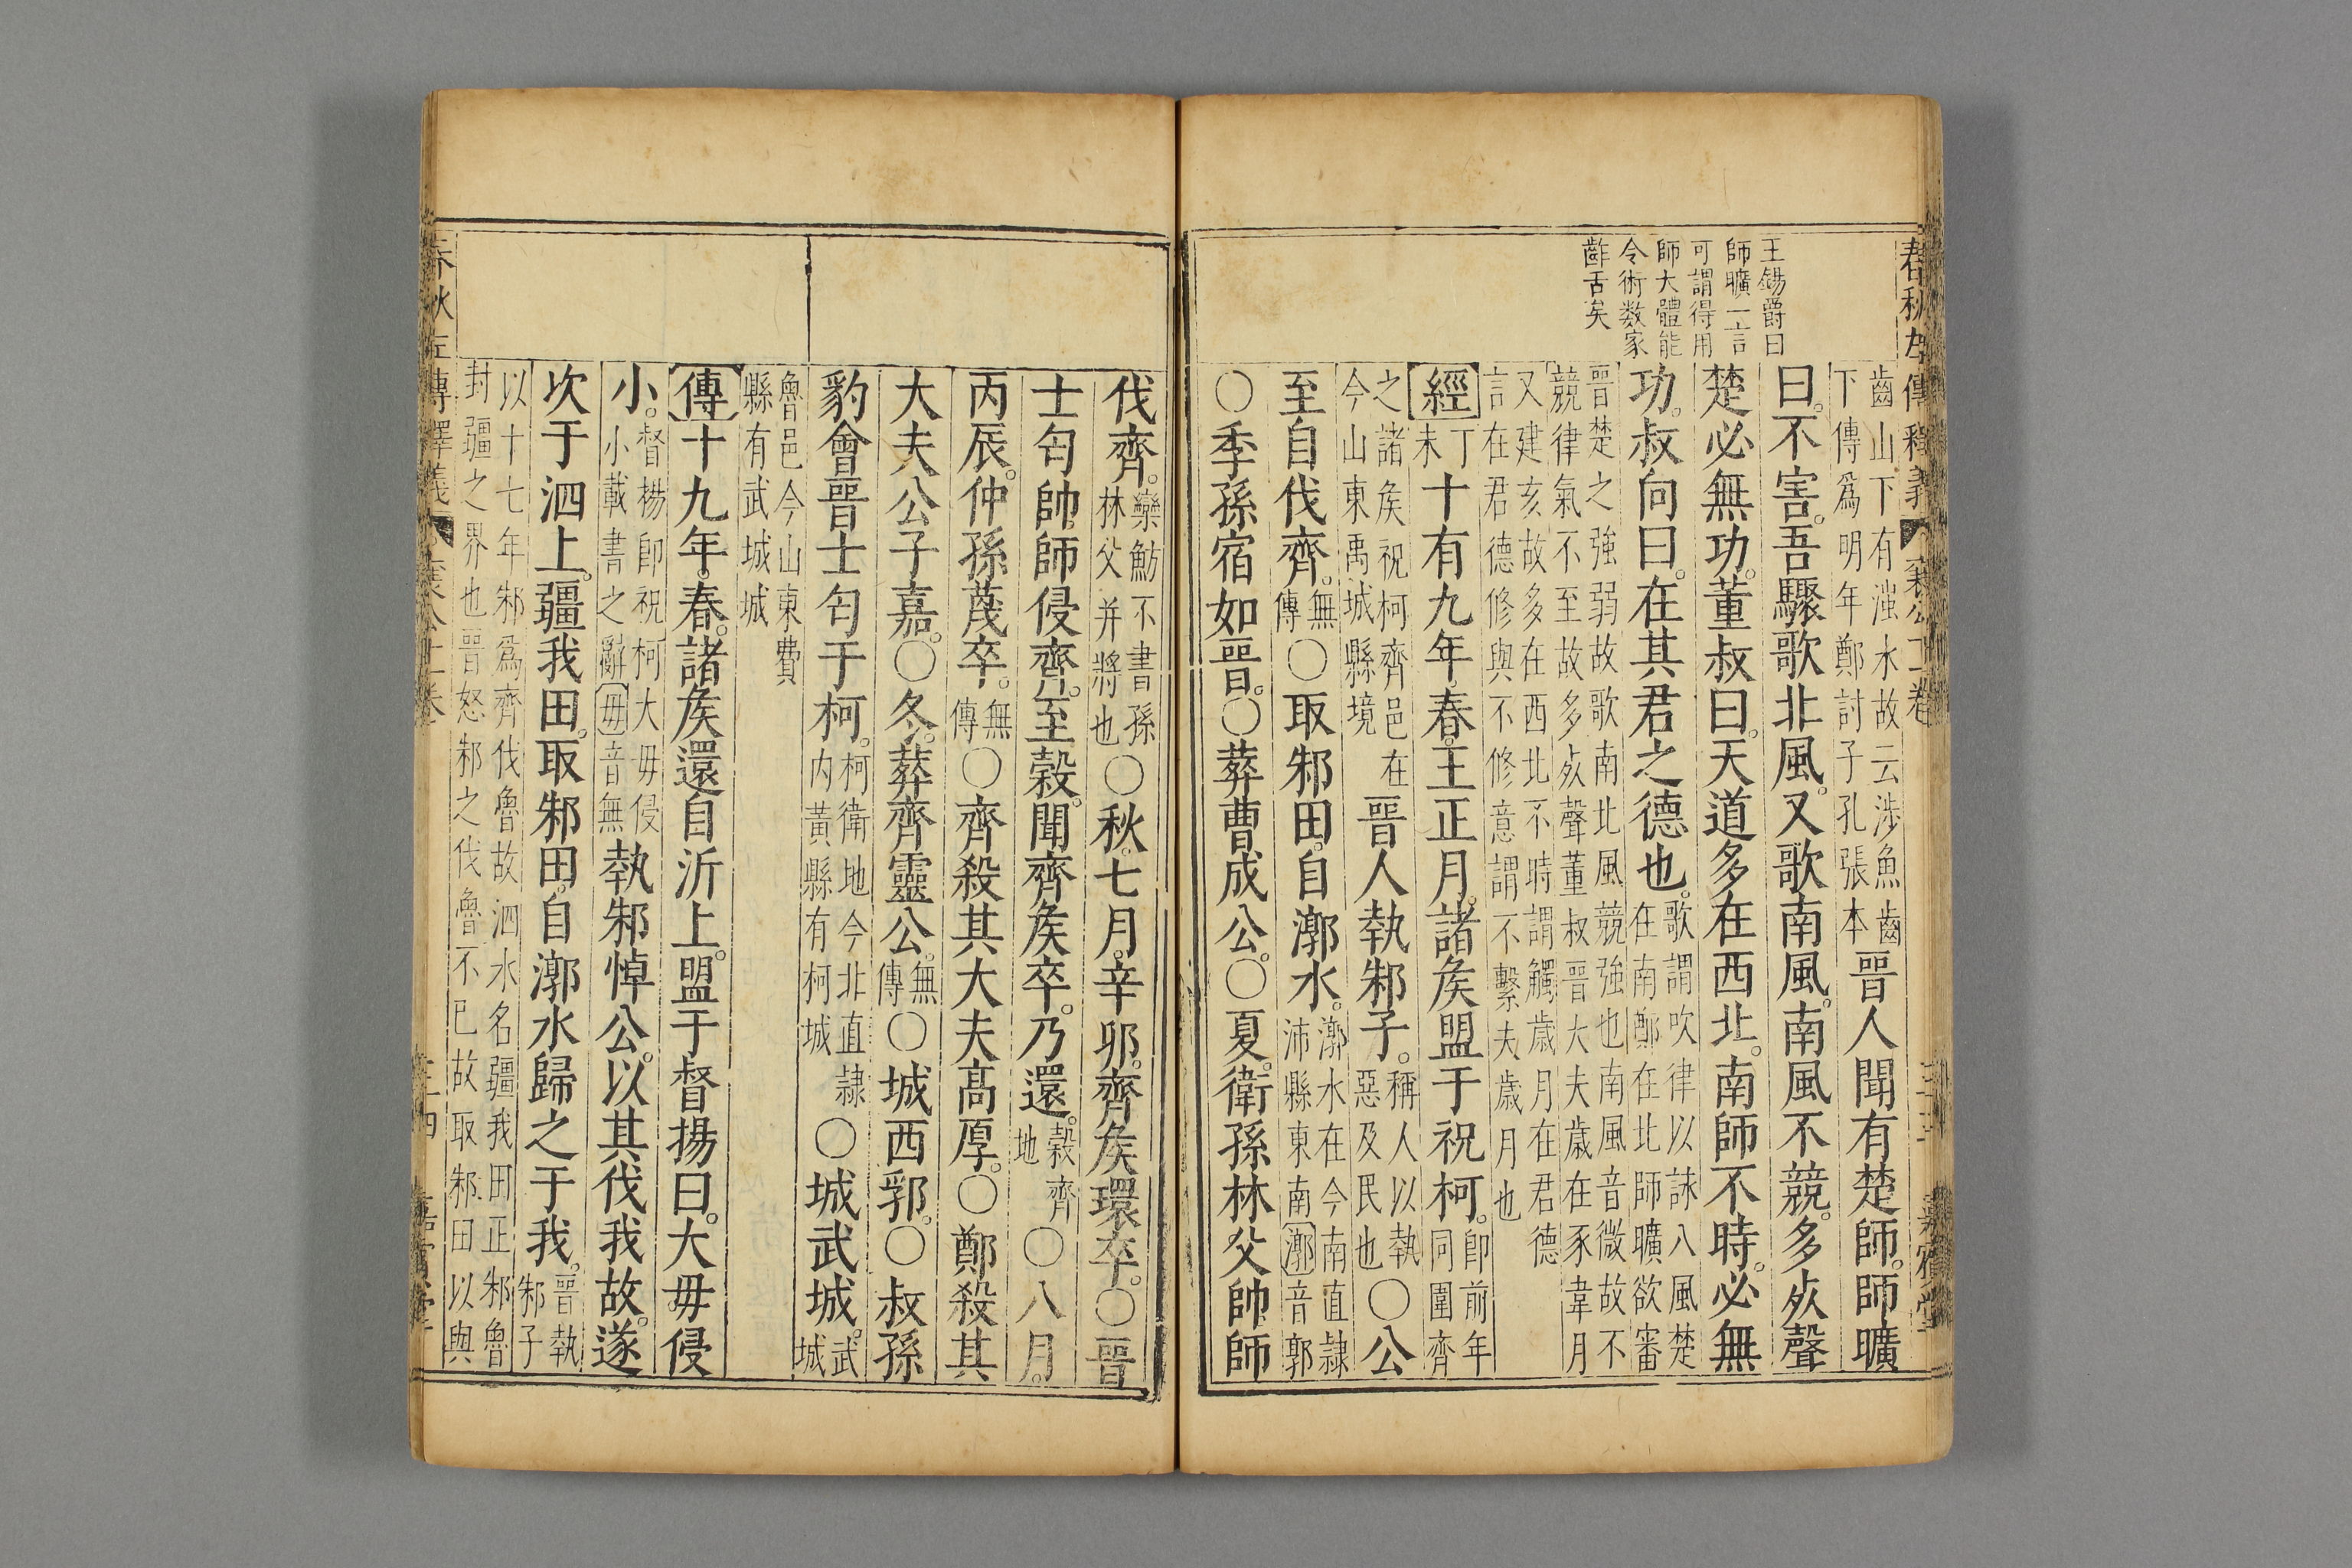 王錫爵曰
師曠一言
可謂得用
師大體能
令術数家
齚舌矣
齒山下有滍水故云涉魚齒下傳爲明年鄭討子孔張本晉人聞有楚師師曠
曰不害吾驟歌北風又歌南風南風不競多死聲
楚必無功董叔曰天道多在西北南師不時必無
功叔向曰在其君之德也歌謂吹律以詠八風楚在南鄭在北師曠欲審
晉楚之強弱故歌南北風競強也南風音微故不競律氣不至故多死聲董叔晉大夫歲在豕韋月
又建亥故多在西北不時謂觸歲月在君德言在君德修與不修意謂不繫夫歲月也
經丁未十有九年春王正月諸矦盟于祝柯即前年同圍齊
之諸矦祝柯齊邑在今山東禹城縣境晉人執邾子稱人以執惡及民也〇公
至自伐齊無傳〇取邾田自漷水漷水在今南直隷沛縣東南漷音郭
〇季孫宿如晉〇葬曹成公〇夏衛孫林父帥師
伐齊欒魴不書孫林父并將也〇秋七月辛卯齊矦環卒〇晉
士匄帥師侵齊至榖聞齊矦卒乃還榖齊地〇八月
丙辰仲孫蔑卒無傳〇齊殺其大夫高厚〇鄭殺其
大夫公子嘉〇冬葬齊靈公無傳〇城西郛〇叔孫
豹會晉士匄于柯柯衛地今北直隷内黃縣有柯城〇城武城武城
魯邑今山東費縣有武城城
傳十九年春諸矦還自沂上盟于督揚曰大毋侵
小督揚即祝柯大毋侵小載書之辭毋音無執邾悼公以其伐我故遂
次于泗上疆我田取邾田自漷水歸之于我晉執邾子
以十七年邾爲齊伐魯故泗水名疆我田正邾魯封疆之界也晉怒邾之伐魯不已故取邾田以與